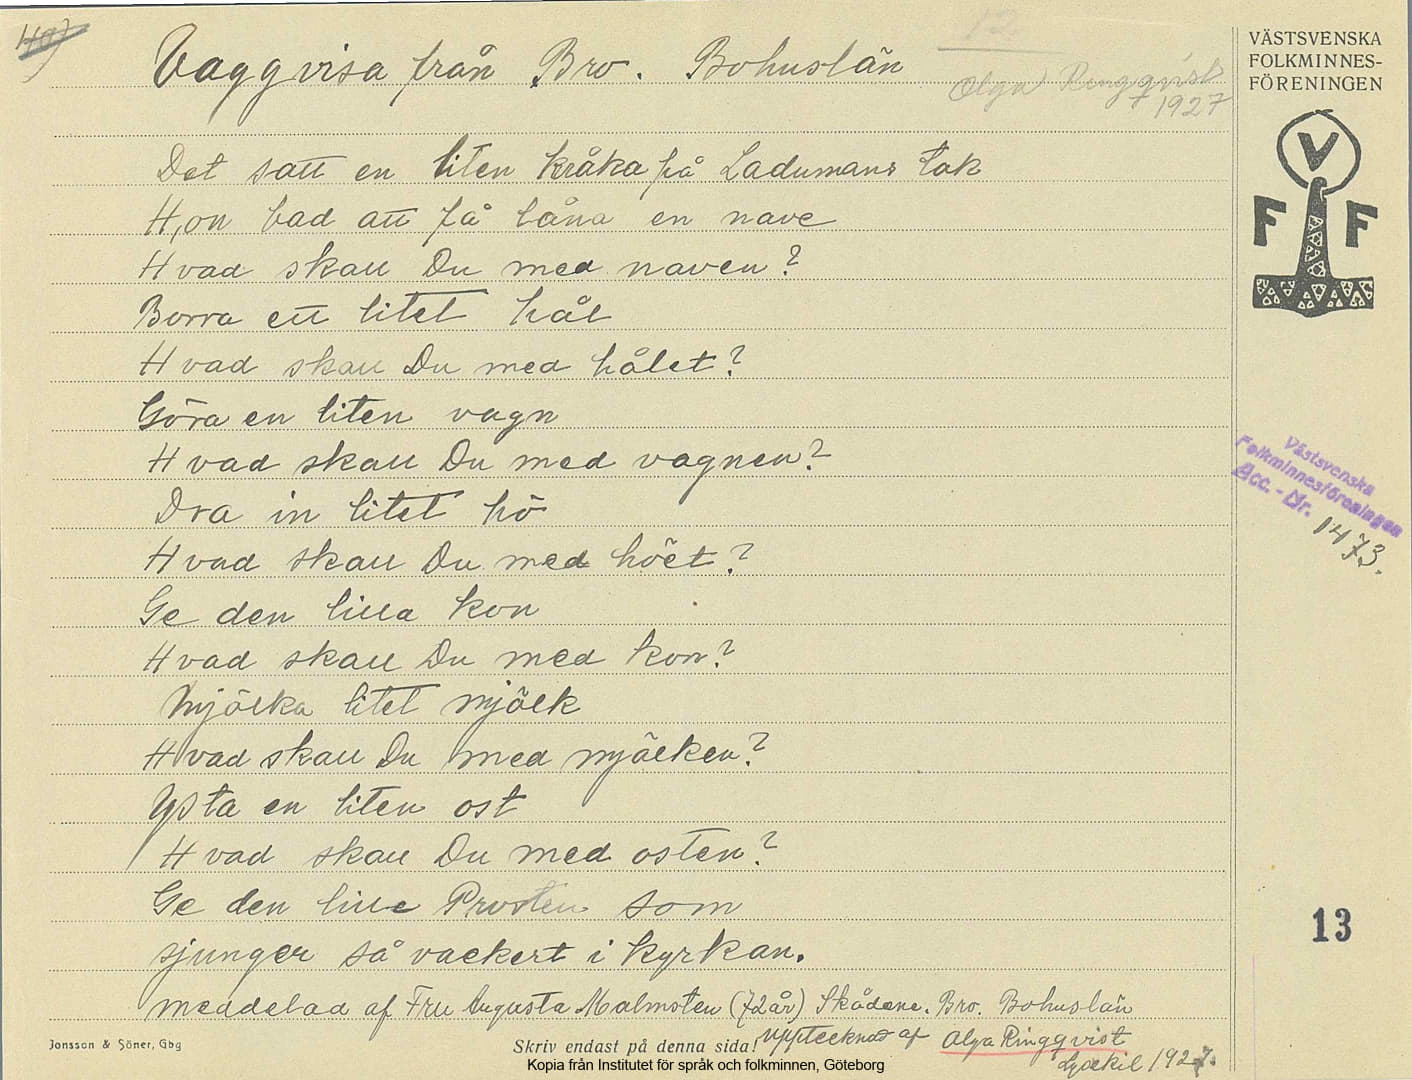 Vaggvisa från Bro. Bohuslän
12
Olga Ringqvist
1927
VÄSTSVENSKA
FOLKMINNES-
FÖRENINGEN
V
F F
Det satt en liten kråka på Ladumans tak
Hon bad att få låna en nave
Hvad skall Du med naven?
Borra ett litet hål
Hvad skall Du med hålet?
Göra en liten vagn
Hvad skall Du med vagnen?
Dra in litet hö
Hvad skall Du med höet?
Ge den lilla kon
Hvad skall Du med kon?
Mjölka litet mjölk
Hvad skall Du med mjölken?
Ysta en liten ost
Hvad skall Du med osten?
Ge den lille Prosten som
sjunger så vackert i kyrkan.
meddelad af Fru Augusta Malmsten (72 år) Skådene. Bro. Bohuslän
Upptecknad af Olga Ringqvist
Lysekil 1927.
Västsvenska
Folkminnesföreningen
Acc. - Nr. 1473.
13
Jonsson & Söner, Gbg
Skriv endast på denna sida!
Kopia från Institutet för språk och folkminnen, Göteborg